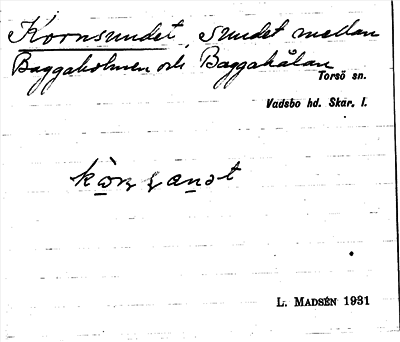 Kornsundet, sundet mellan
Baggaholmen och Baggahålan
Torsö sn.
Vadsbo hd. Skar. l.
L. MADSÉN 1931